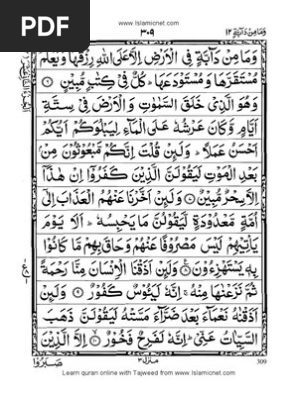 www.Islamicnet.com
PDF
وما من دآبة ١٢
٣٠٩
وَمَا مِنْ دَآبَّةٍ فِي الْاَرْضِ اِلَّا عَلَى اللّٰهِ رِزْقُهَا وَيَعْلَمُ
مُسْتَقَرَّهَا وَمُسْتَوْدَعَهَا ؕ كُلٌّ فِيْ كِتٰبٍ مُّبِيْنٍ
وَهُوَ الَّذِيْ خَلَقَ السَّمٰوٰتِ وَ الْاَرْضَ فِيْ سِتَّةِ
اَيَّامٍ وَّكَانَ عَرْشُهٗ عَلَى الْمَآءِ لِيَبْلُوَكُمْ اَيُّكُمْ
اَحْسَنُ عَمَلًا ؕ وَلَئِنْ قُلْتَ اِنَّكُمْ مَّبْعُوْثُوْنَ مِنْۢ
بَعْدِ الْمَوْتِ لَيَقُوْلَنَّ الَّذِيْنَ كَفَرُوْۤا اِنْ هٰذَاۤ
اِلَّا سِحْرٌ مُّبِيْنٌ وَلَئِنْ اَخَّرْنَا عَنْهُمُ الْعَذَابَ اِلٰۤى
اُمَّةٍ مَّعْدُوْدَةٍ لَّيَقُوْلُنَّ مَا يَحْبِسُهٗ ؕ اَلَا يَوْمَ
يَاْتِيْهِمْ لَيْسَ مَصْرُوْفًا عَنْهُمْ وَحَاقَ بِهِمْ مَّا كَانُوْا
بِهٖ يَسْتَهْزِءُوْنَ وَلَئِنْ اَذَقْنَا الْاِنْسَانَ مِنَّا رَحْمَةً
ثُمَّ نَزَعْنٰهَا مِنْهُ ۚ اِنَّهٗ لَيَـُٔوْسٌ كَفُوْرٌ وَلَئِنْ
اَذَقْنٰهُ نَعْمَآءَ بَعْدَ ضَرَّآءَ مَسَّتْهُ لَيَقُوْلَنَّ ذَهَبَ
السَّيِّاٰتُ عَنِّيْ ؕ اِنَّهٗ لَفَرِحٌ فَخُوْرٌ اِلَّا الَّذِيْنَ
صَبَرُوْا
منزل ٣
309
Learn quran online with Tajweed from www.Islamicnet.com